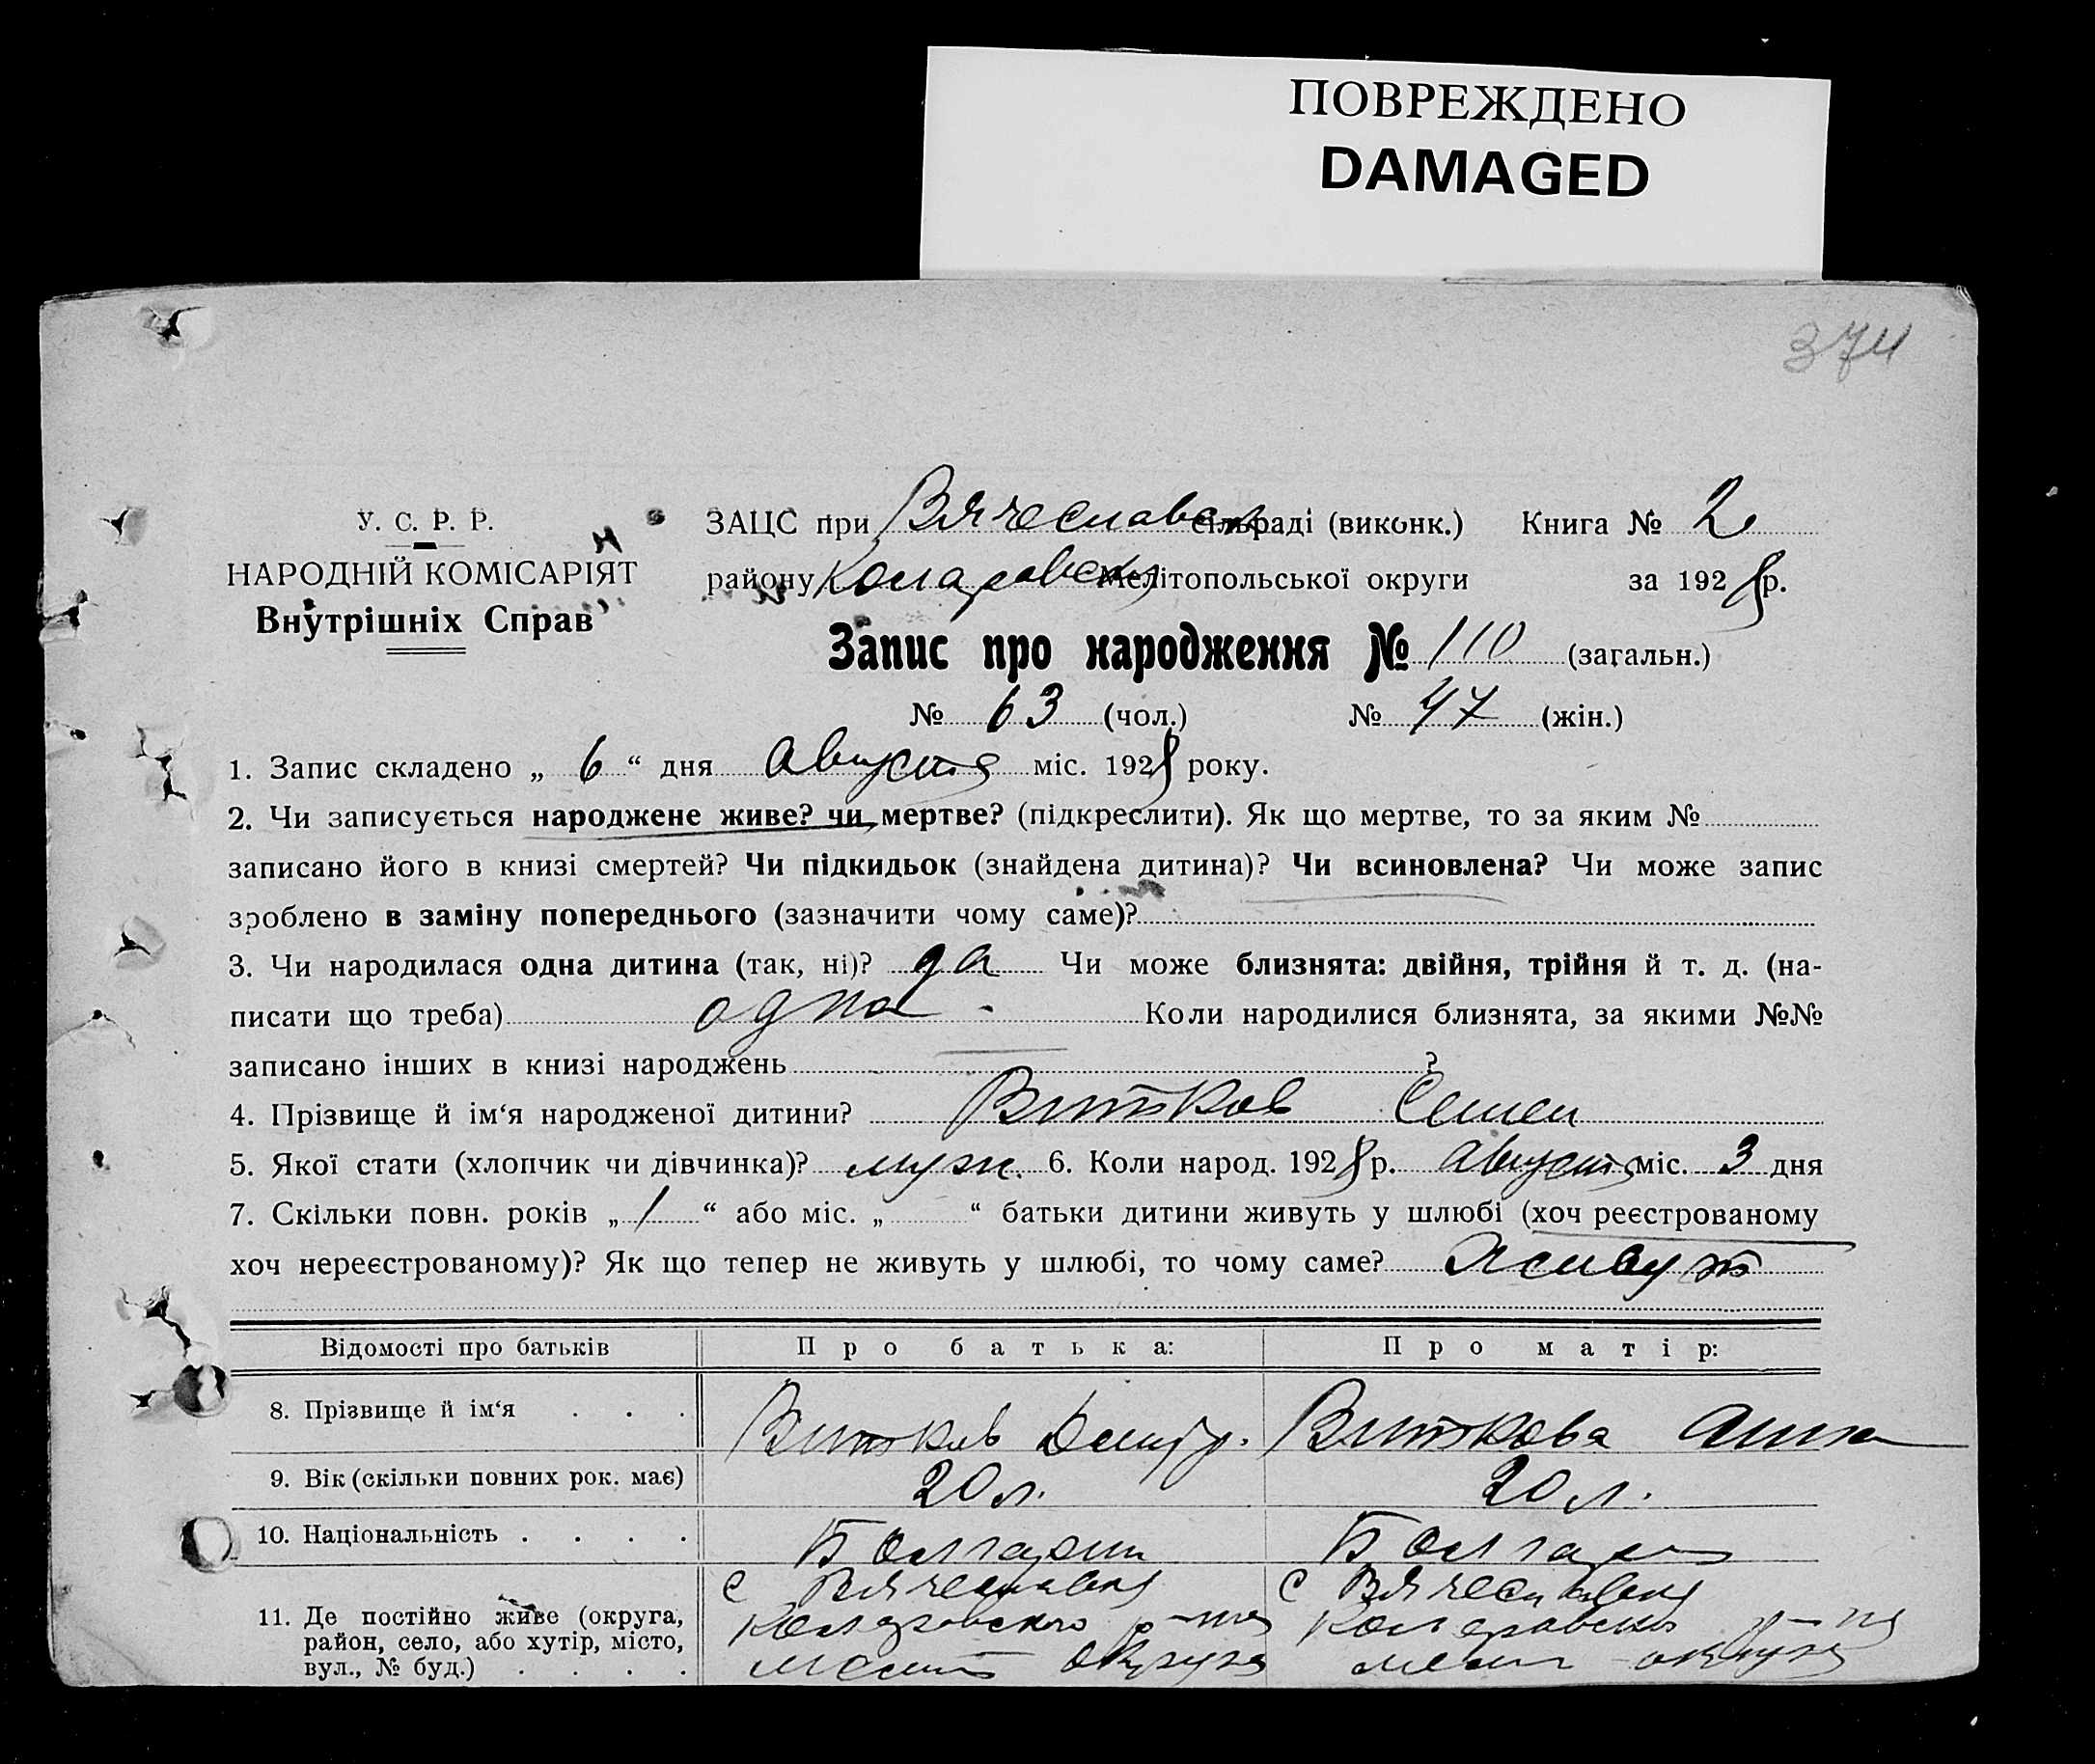 ПОВРЕЖДЕНО
DAMAGED
374
У. С. Р. Р.
НАРОДНІЙ КОМІСАРІЯТ
Внутрішніх Справ
ЗАЦС при Вячеславск сільраді (виконк.) Книга № 2
району Коларовск Мелітопольської округи за 1928 р.
Запис про народження № 110 (загальн.)
№ 63 (чол.) № 47 (жін.)
1. Запис складено „ 6 “ дня августа міс. 1928 року.
2. Чи записується народжене живе? чи мертве? (підкреслити). Як що мертве, то за яким №
записано його в книзі смертей? Чи підкидьок (знайдена дитина)? Чи всиновлена? Чи може запис
зроблено в заміну попереднього (зазначити чому саме)?
3. Чи народилася одна дитина (так, ні)? да Чи може близнята: двійня, трійня й т. д. (на-
писати що треба) одна - Коли народилися близнята, за якими №№
записано інших в книзі народжень ?
4. Прізвище й ім‘я народженої дитини? Витков Семен
5. Якої стати (хлопчик чи дівчинка)? муж. 6. Коли народ. 1928 р. августа міс. 3 дня
7. Скільки повн. років „ 1 “ або міс. „ “ батьки дитини живуть у шлюбі (хоч реєстрованому
хоч нереєстрованому)? Як що тепер не живуть у шлюбі, то чому саме? живут
Відомості про батьків Про батька: Про матір:
8. Прізвище й ім‘я . . . Витков Дмитр. Виткова Анна
9. Вік (скільки повних рок. має) 20 л. 20 л.
10. Національність . . . . Болгарин Болгар
11. Де постійно живе (округа, район, село, або хутір, місто, вул., № буд.) . . . .
с Вячеславка
Коларовского р-на
Мелит округа
с Вячеславка
Коларовск р-на
мелит округа